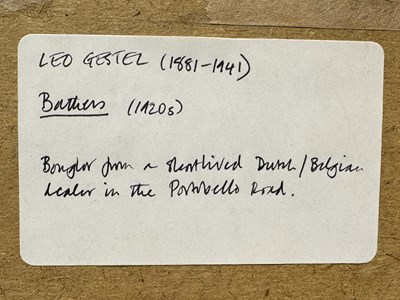 LEO GESTEL (1881-1941)
Bathers (1920s)
Bought from a shortlived Dutch/Belgian
dealer in the Portobello Road.